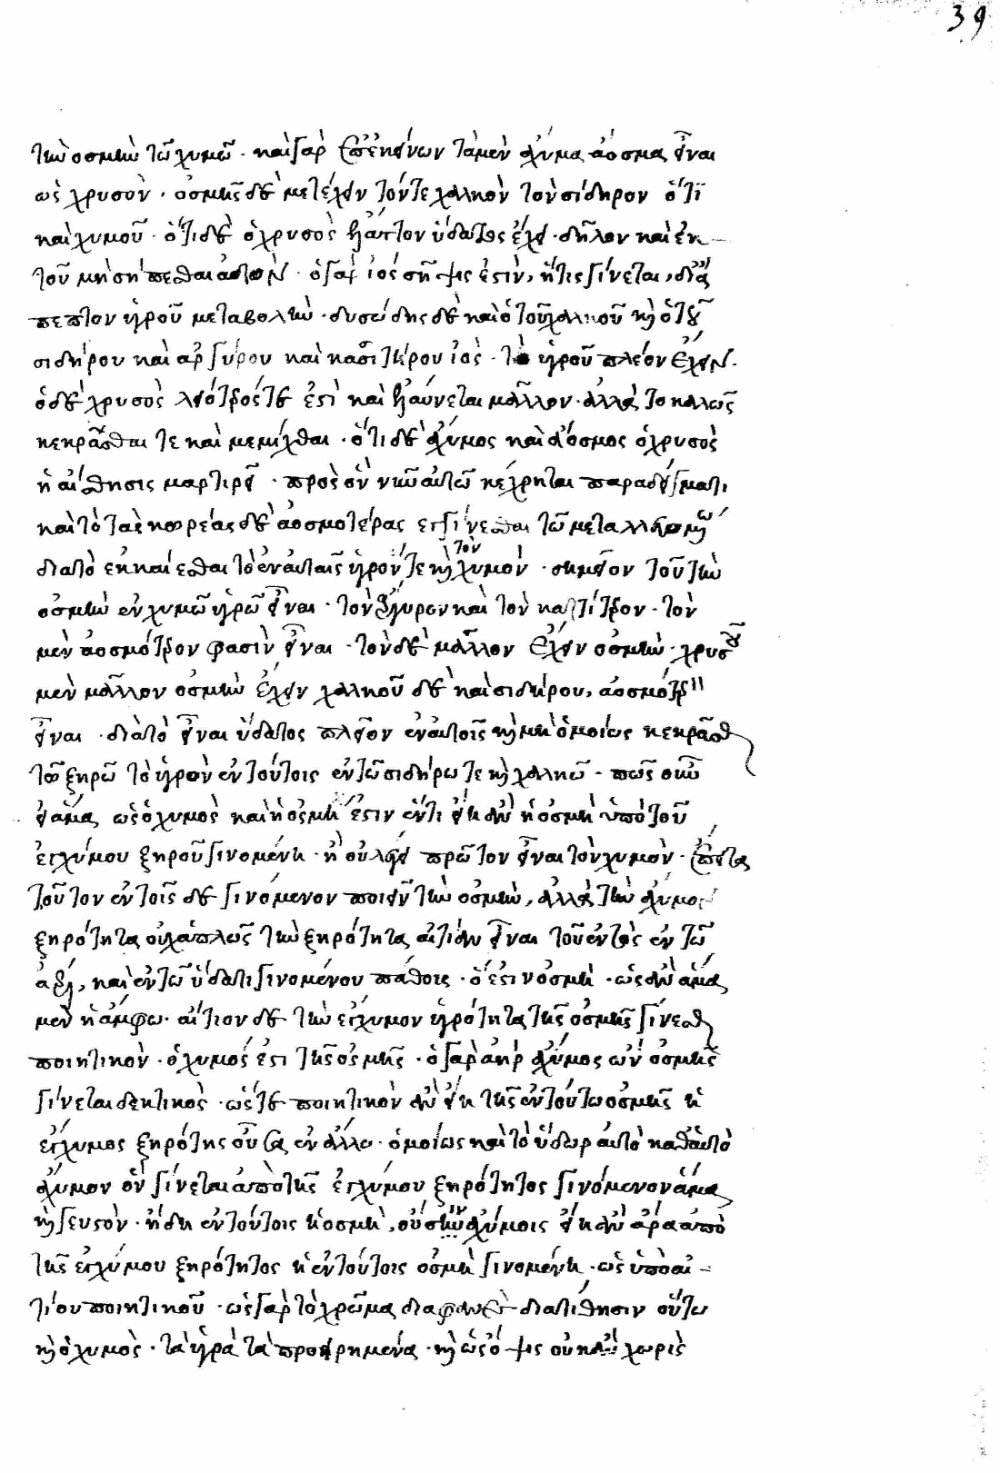 39
τὴν ὀσμὴν τῶ χυμῶ · καὶ γὰρ ἐπ' ἐκείνων τὰ μὲν ἄχυμα, ἄοσμα εἶναι
ὡς χρυσὸν · ὀσμῆς δὲ μετέχειν τόν τε χαλκὸν τὸν σίδηρον ὅτι
καὶ χυμοῦ · ὅτι δὲ ὁ χρυσὸς ἔλαττον ὕδατος ἔχει · δῆλον καὶ ἐκ
τοῦ μὴ σήπεσθαι αὐτὸν · ὁ γὰρ ἰός σῆψις ἐστὶν, ἥτις γίνεται, διὰ
πέττον ὑγροῦ μεταβολὴν · δυσώδης δὲ καὶ ὁ τοῦ χαλκοῦ καὶ ὁ τοῦ
σιδήρου καὶ αργύρου καὶ κασσιτέρου ἰὸς · τὸ ὑγροῦ πλέον ἔχειν ·
ὁ δὲ χρυσὸς λειότερός τέ ἐστὶ καὶ ἐλαύνεται μᾶλλον · ἀλλὰ τὸ καλῶς
κεκρᾶσθαι τε καὶ μεμίχθαι · ὅτι δὲ ἄχυμος καὶ ἄοσμος ὁ χρυσὸς
ἡ αἴσθησις μαρτυρεῖ · πρὸς ὃν νῦν αὐτῶ κέχρηται παραδείγματι
καὶ τὸ τὰς σκωρίας δὲ ἀοσμοτέρας ἐγγίνεσθαι τῶ μετάλλων
διὰ τὸ ἐκκαίεσθαι τὸ ἐν αὐταῖς ὑγρόν τε καὶ τὸν χυμὸν · σημεῖον τοῦ τὴν
ὀσμὴν ἐν χυμῶ ὑγρῶ εἶναι · τὸν ἄργυρον καὶ τὸν κασσίτερον · τὸν
μὲν ἀοσμότερον φασὶν εἶναι · τὸν δὲ μᾶλλον ἔχειν ὀσμὴν · χρυσοῦ
μὲν μᾶλλον ὀσμὴν ἔχειν χαλκοῦ δὲ καὶ σιδήρου, ἀοσμότερον
εἶναι · διὰ τὸ εἶναι ὕδατος πλεῖον ἐν αὐτοῖς καὶ μὴ ὁμοίως κεκρᾶσθαι
τῶ ξηρῶ τὸ ὑγρὸν ἐν τούτοις ἐν τῶ σιδήρω τε καὶ χαλκῶ · πῶς οὖν
εἰ ἅμα, ὡς ὁ χυμὸς καὶ ἡ ὀσμή ἐστιν ἔτι εἴη ἂν ἡ ὀσμὴ ὑπὸ τοῦ
ἐγχύμου ξηροῦ γινομένη · ἢ οὐ λέγει πρῶτον εἶναι τὸν χυμὸν · ἔπειτα
τοῦτον ἐν τοῖς δὲ γινόμενον ποιεῖν τὴν ὀσμὴν, ἀλλὰ τὴν ἄχυμον
ξηρότητα οὐχ ἁπλῶς τὴν ξηρότητα αἰτίαν εἶναι τοῦ ἐντὸς ἐν τῶ
ἀέρι, καὶ ἐν τῶ ὕδατι γινομένου πάθους · ὅ ἐστιν ὀσμὴ · ὡς ἂν ἅμα,
μὲν ἢ ἄμφω · αἴτιον δὲ τὴν ἔγχυμον ὑγρότητα τῆς ὀσμῆς γίνεσθαι
ποιητικὸν · ὁ χυμός ἐστι τῆς ὀσμῆς · ὁ γὰρ ἀὴρ ἄχυμος ὢν ὀσμῆς
γίνεται δεκτικὸς · ὥστε ποιητικὸν ἂν εἴη τῆς ἐν τούτω ὀσμῆς ἡ
ἔγχυμος ξηρότης οὖσα ἐν ἄλλω · ὁμοίως καὶ τὸ ὕδωρ αὐτὸ καθ' αὑτὸ
ἄχυμον ὂν γίνεται ἀπὸ τῆς ἐγχύμου ξηρότητος γινόμενον ἅμα,
καὶ γευστὸν · ἤδη ἐν τούτοις ἡ ὀσμὴ, οὖσιν ἀχύμοις εἴη ἂν ἄρα ἀπὸ
τῆς ἐγχύμου ξηρότητος ἡ ἐν τούτοις ὀσμὴ γινομένη · ὡς ὑπὸ αἰ-
τίου ποιητικοῦ · ὡς γὰρ τὸ χρῶμα διαφανὲς διατίθησιν οὕτω
καὶ ὁ χυμὸς · τὰ ὑγρὰ τὰ προειρημένα · καὶ ὡς ὄψις οὐκ ἂν χωρὶς